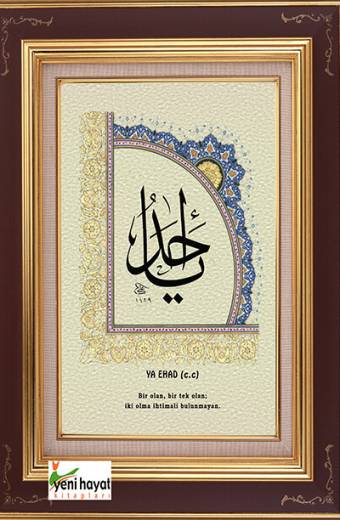 يا أحدُ
١٤٢٩
YA EHAD (c.c)
Bir olan, bir tek olan;
iki olma ihtimali bulunmayan.
yeni hayat
kitapları